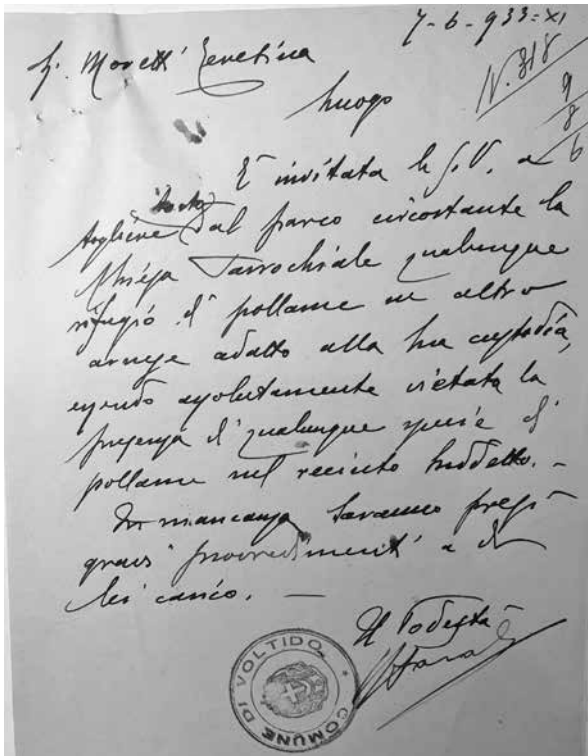 7-6-933=XI
N. 818
9
8
6
Moretti
Luogo
È invitata la S.V. a
tosto
togliere dal parco circostante la
Chiesa Parrochiale qualunque
rifugio di pollame od altro
arnese adatto alla sua custodia,
essendo assolutamente vietata la
presenza di qualunque specie di
pollame nel recinto suddetto. -
In mancanza saranno presi
gravi provvedimenti a di
lei carico. —
Il Podestà
COMUNE DI VOLTIDO